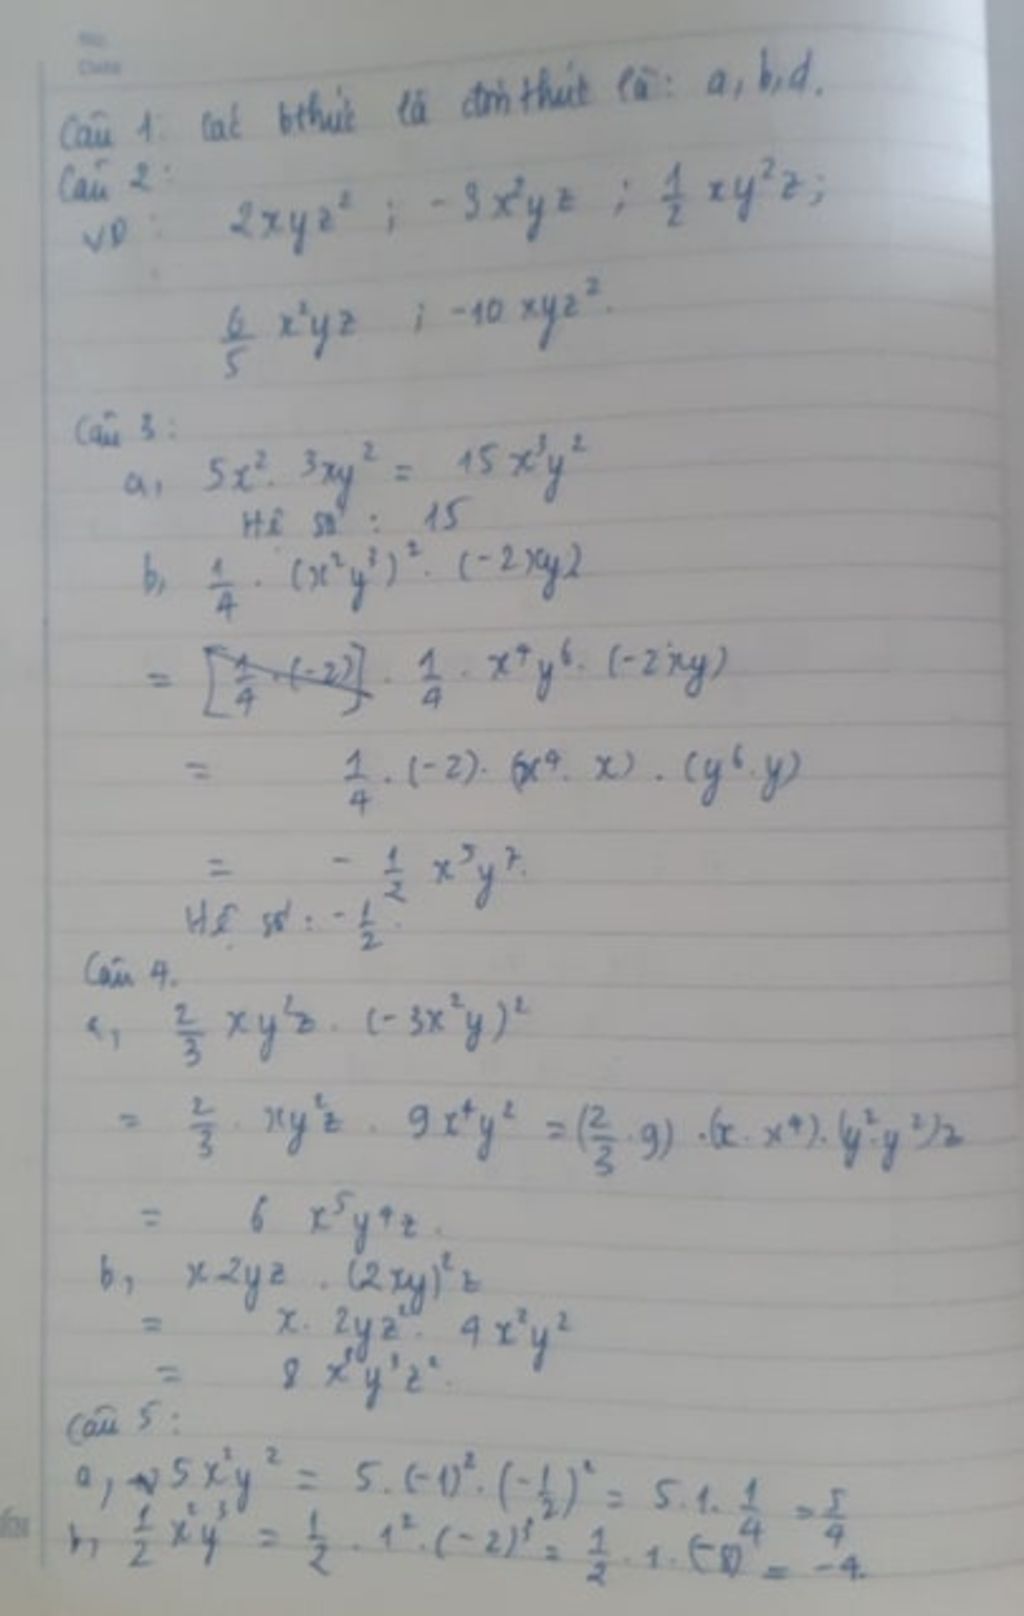 No.
Date
Câu 1: Các bthức là đơn thức là: a, b, d.
Câu 2:
VD: 2xyz² ; -3x²yz ; 1/2 xy²z;
6/5 x²yz ; -10 xyz².
Câu 3:
a, 5x². 3xy² = 15x³y²
Hệ số : 15
b, 1/4 . (x²y³)² . (-2xy)
= [1/4 . (-2)] . 1/4 . x⁴y⁶ . (-2xy)
= 1/4 . (-2). (x⁴. x) . (y⁶. y)
= - 1/2 x⁵y⁷.
Hệ số : -1/2.
Câu 4.
a, 2/3 xy²z . (-3x²y)²
= 2/3 . xy²z . 9x⁴y² = (2/3 . 9) . (x. x⁴). (y². y²)z
= 6 x⁵y⁴z.
b, x2yz . (2xy)²z
= x. 2yz². 4x²y²
= 8 x³y³z².
Câu 5:
a, 5x²y² = 5. (-1)². (-1/2)² = 5.1. 1/4 = 5/4
b, 1/2 x²y³ = 1/2 . 1² . (-2)³ = 1/2 . 1. (-8) = -4.